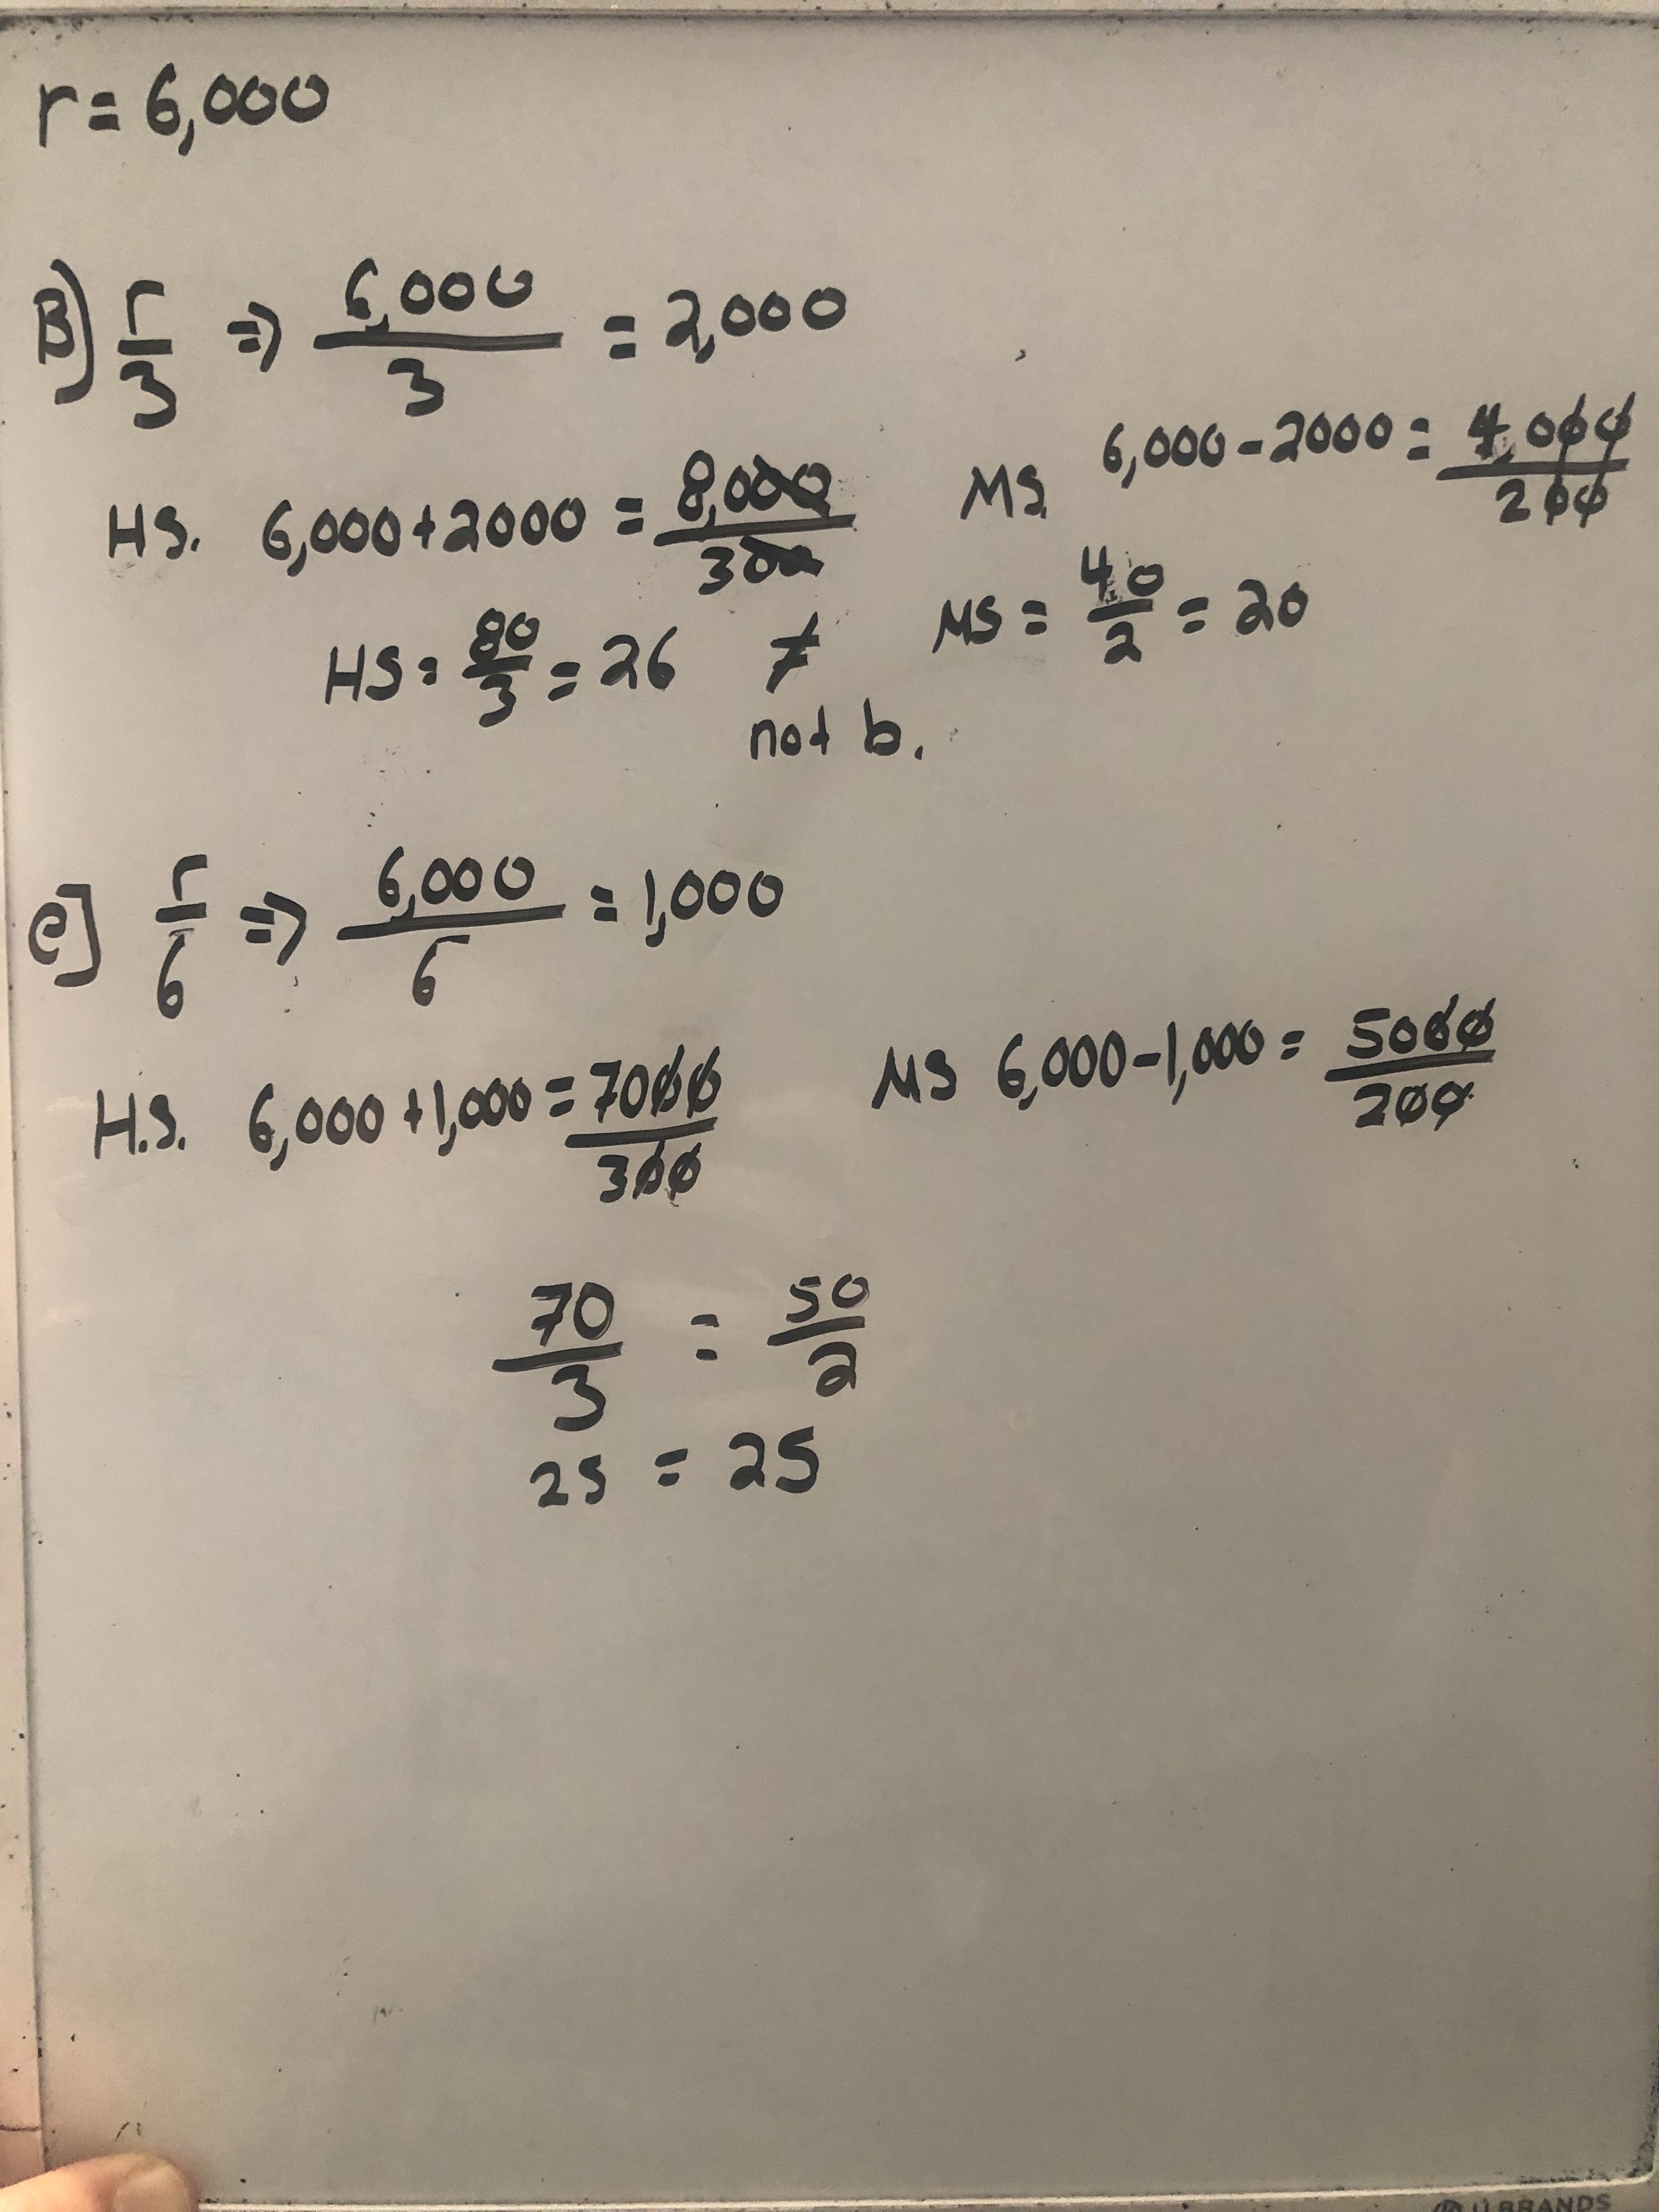 r = 6,000
B) r/3 => 6,000/3 = 2,000
HS. 6,000 + 2000 = 8,000/300
MS. 6,000 - 2000 = 4,000/200
HS = 80/3 = 26 ≠ MS = 40/2 = 20
not b.
C] r/6 => 6,000/6 = 1,000
H.S. 6,000 + 1,000 = 7000/300
MS 6,000 - 1,000 = 5000/200
70/3 = 50/2
25 = 25
U BRANDS